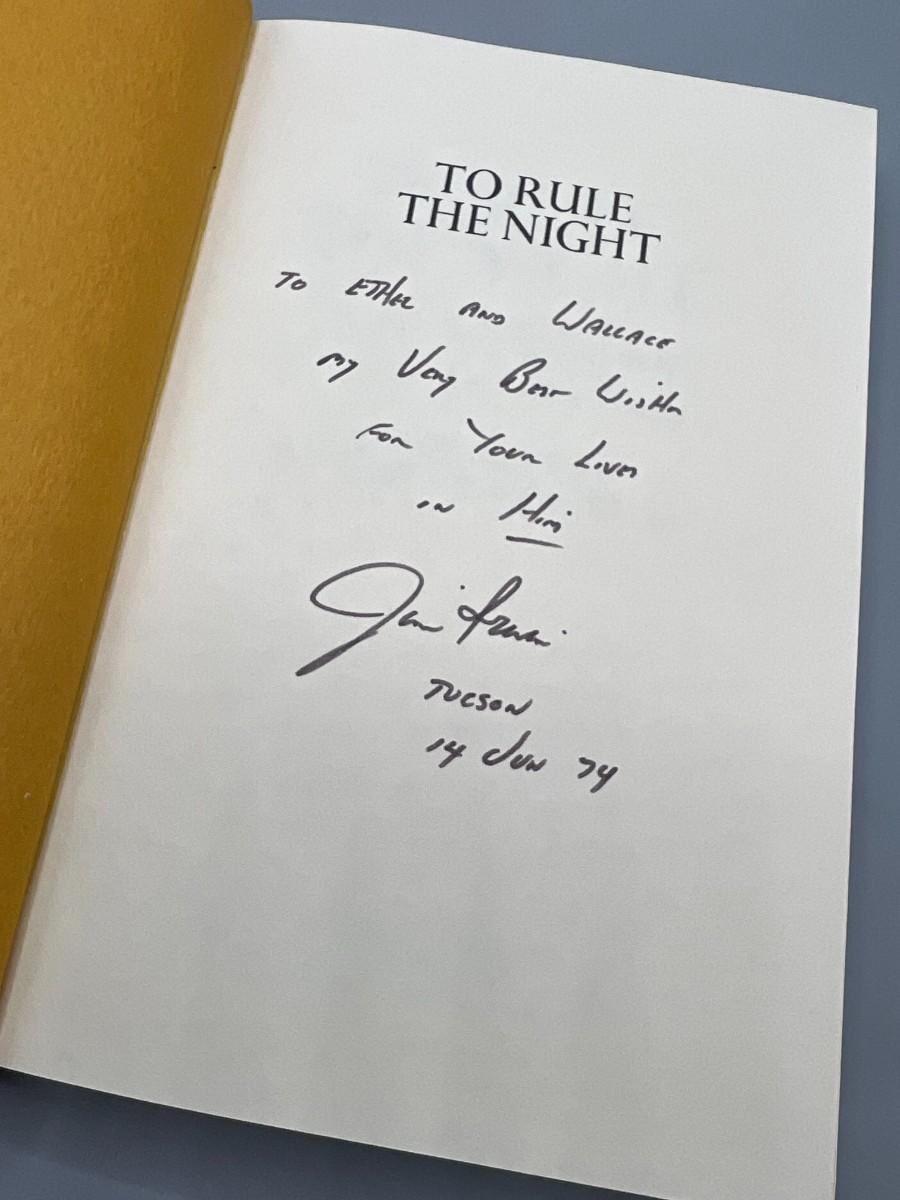 TO RULE
THE NIGHT
TO ETHEL AND WALLACE
MY VERY BEST WISHES
FOR YOUR LIVES
IN HIM
Jim Irwin
TUCSON
14 JUN 74